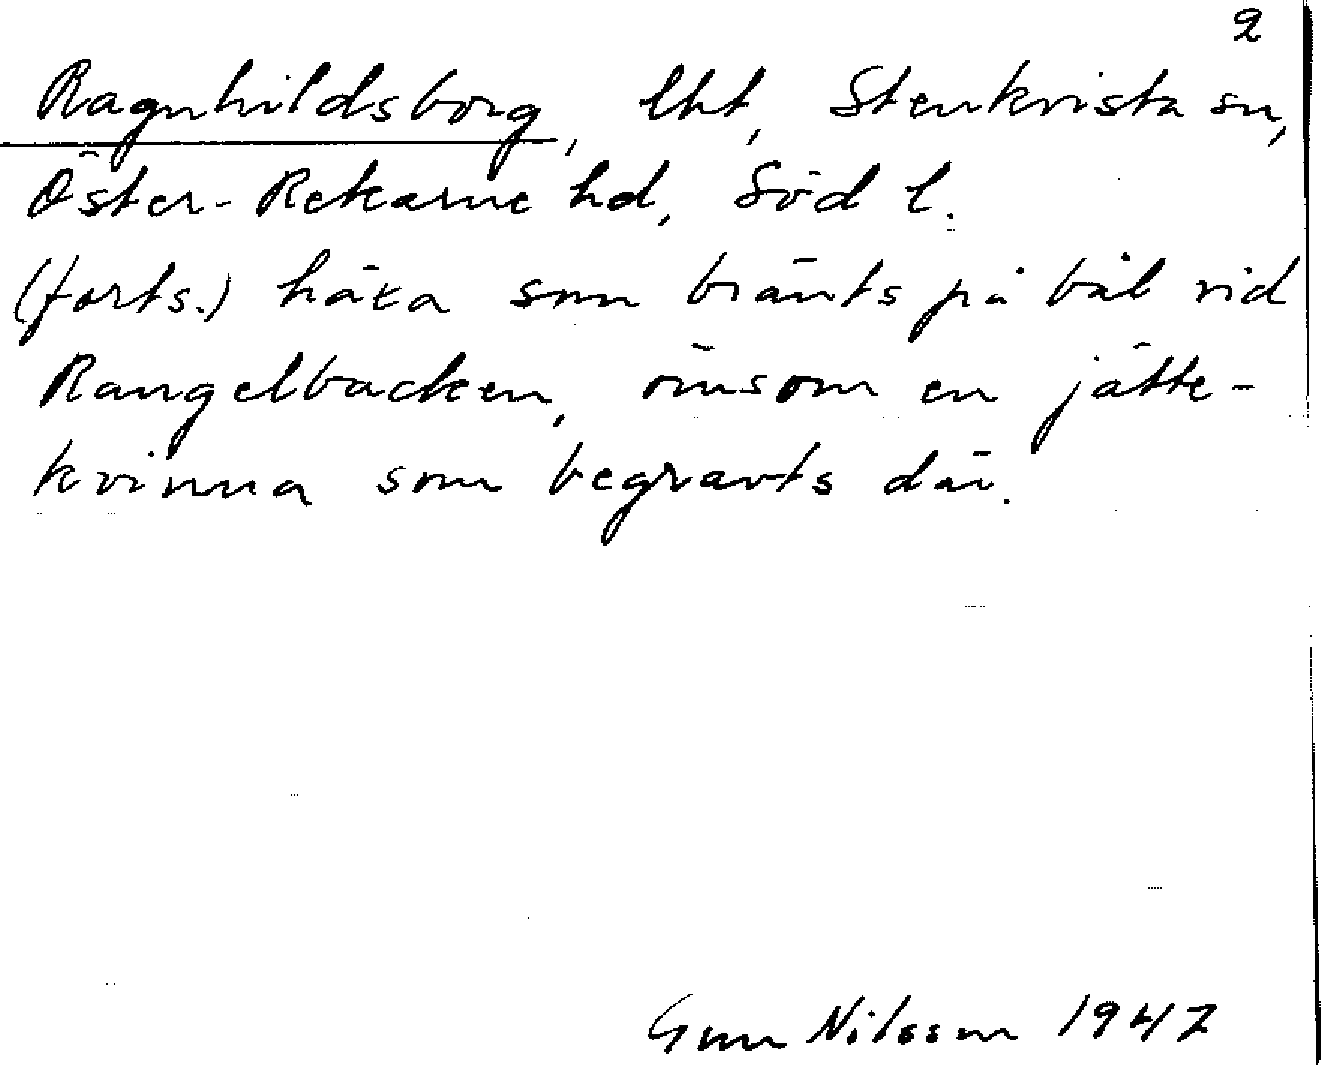 2
Ragnhildsborg, lht, Stenkvista sn,
Öster-Rekarne hd, Söd l.
(forts.) häxa som bränts på bål vid
Rangelbacken, ömsom en jätte-
kvinna som begravts där.
Gun Nilsson 1947